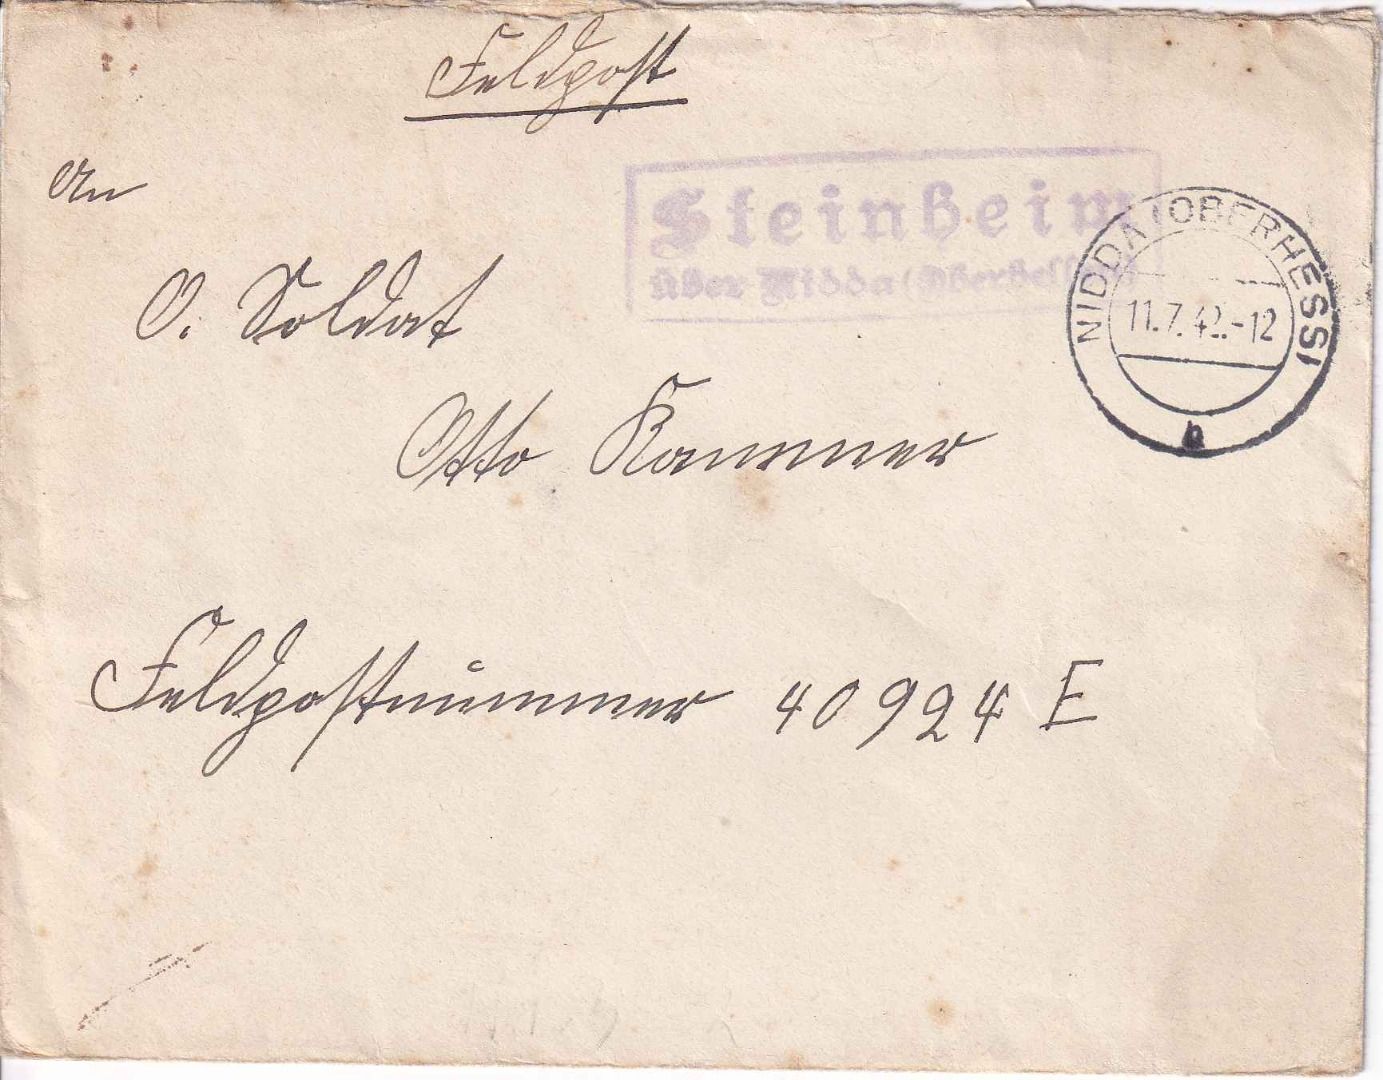 Feldpost
An
Steinheim
über Nidda (Oberhessen)
NIDDA (OBERHESS)
11.7.42.-12
b
O. Soldat
Otto Kammer
Feldpostnummer 40924 E